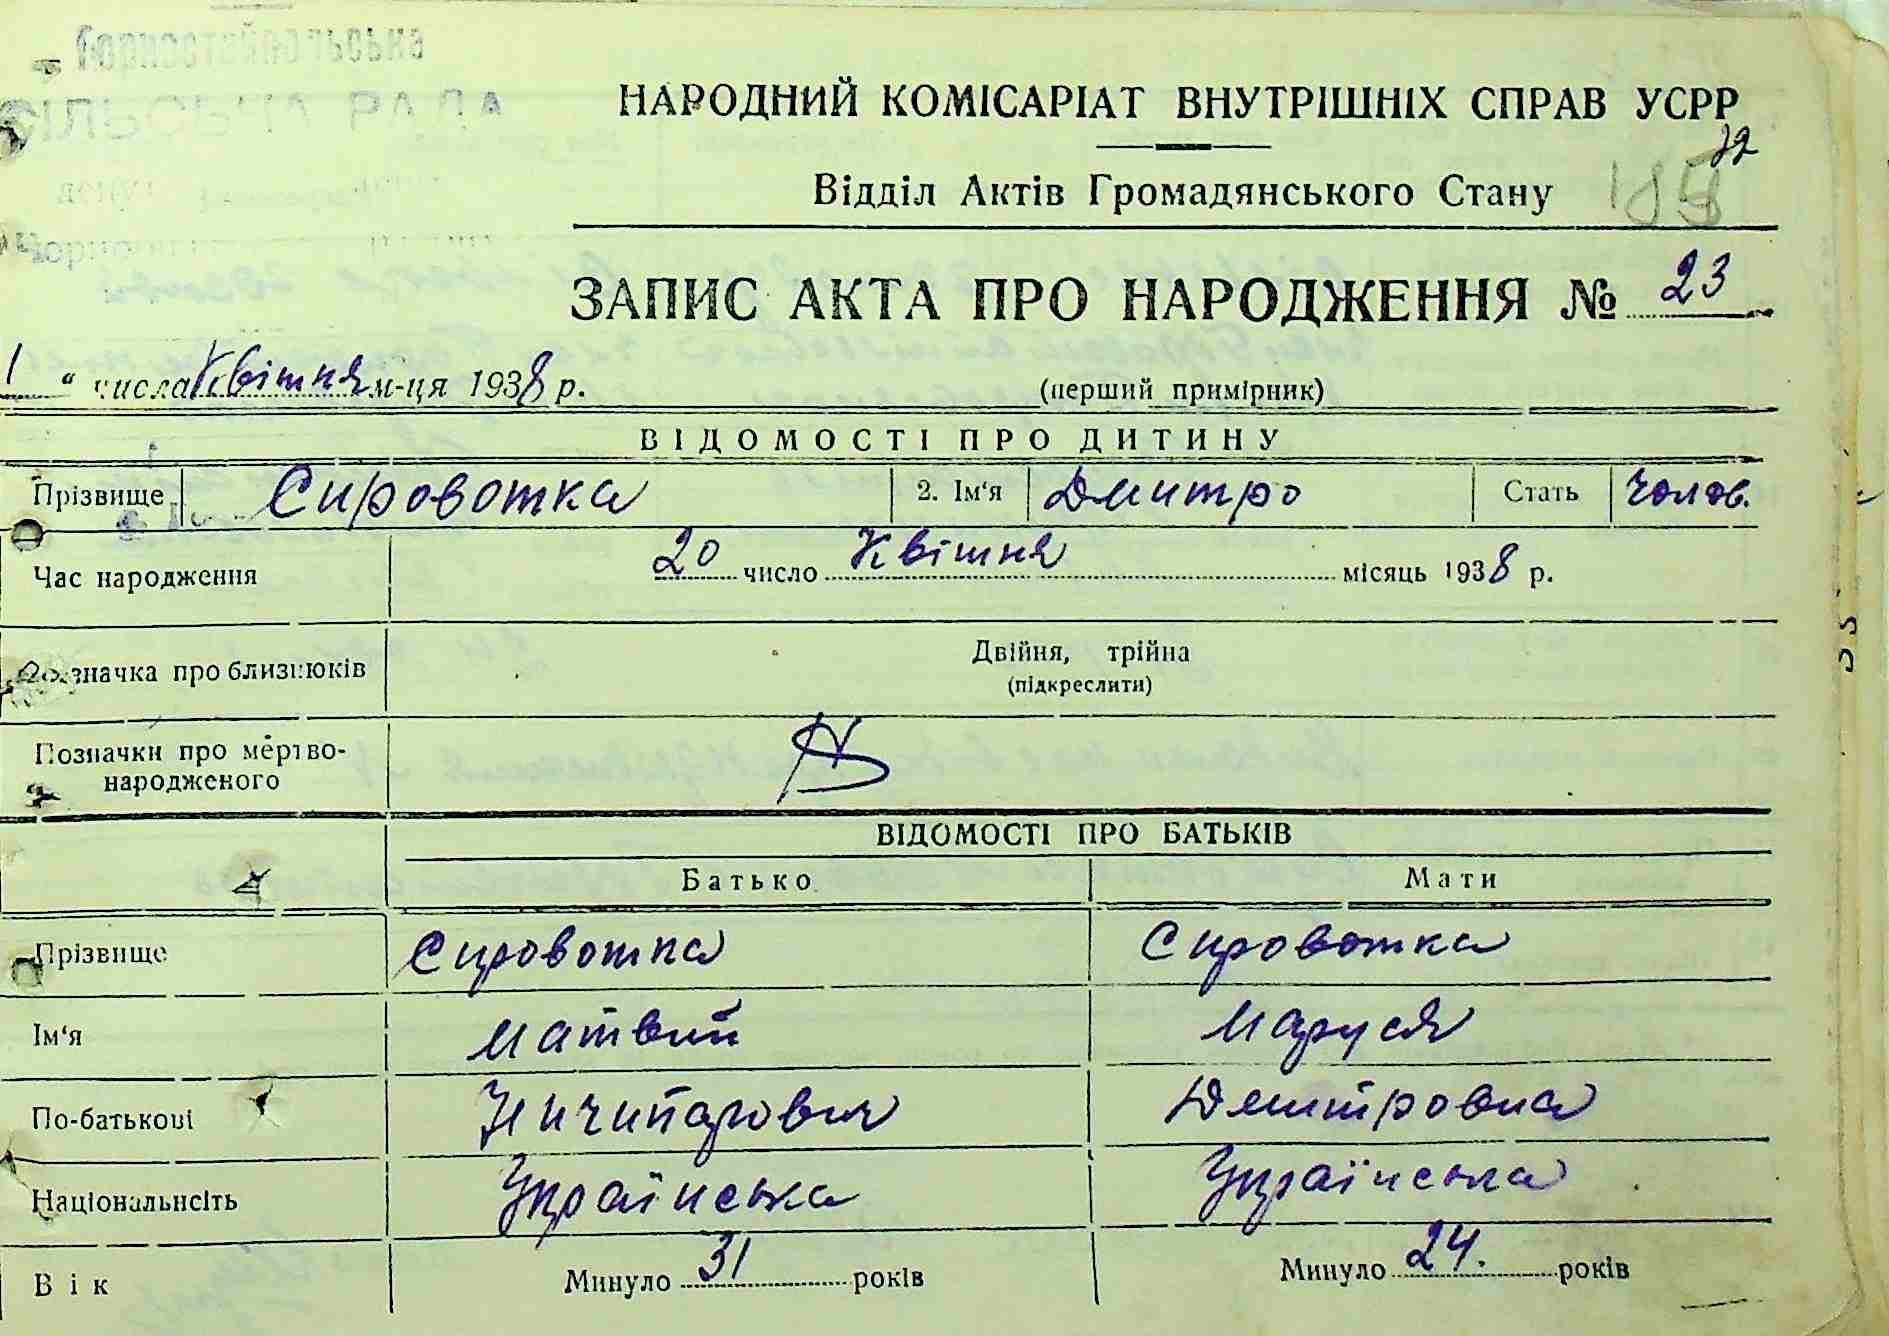 Горностайпольська
СІЛЬСЬКА РАДА
НАРОДНИЙ КОМІСАРІАТ ВНУТРІШНІХ СПРАВ УСРР
Відділ Актів Громадянського Стану
ЗАПИС АКТА ПРО НАРОДЖЕННЯ № 23
1 " числа Квітня м-ця 1938 р. (перший примірник)
ВІДОМОСТІ ПРО ДИТИНУ
Прізвище Сировотка 2. Ім'я Дмитро Стать чолов.
Час народження 20 число Квітня місяць 1938 р.
Двійня, трійня
Позначка про близнюків (підкреслити)
Позначки про мертво-
народженого
ВІДОМОСТІ ПРО БАТЬКІВ
Батько Мати
Прізвище Сировотка Сировотка
Ім'я Матвий Маруся
По-батькові Ничипарович Дмитровна
Національнсіть Українська Українська
Вік Минуло 31 років Минуло 24. років